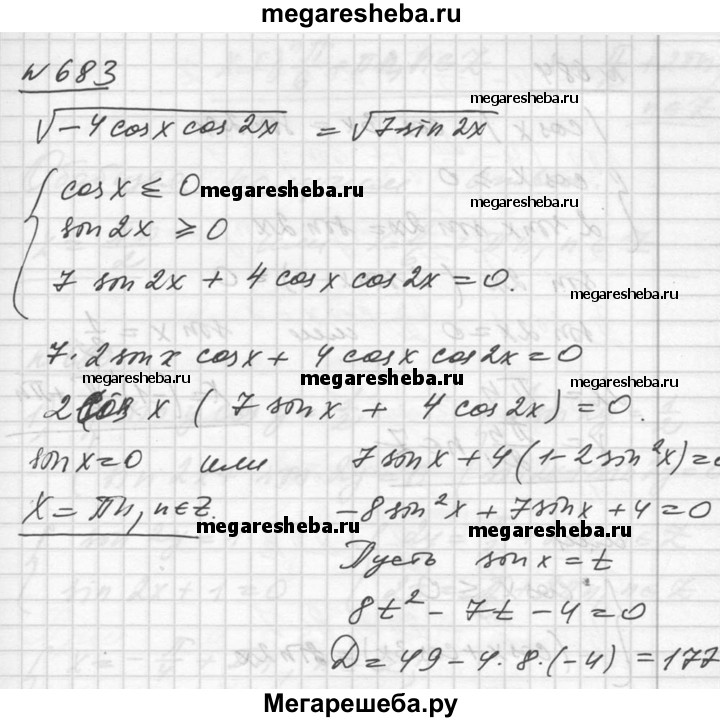 megaresheba.ru
№ 683
√(-4 cos x cos 2x) = √(7 sin 2x)
megaresheba.ru
cos x ≤ 0 megaresheba.ru
sin 2x ≥ 0 megaresheba.ru
7 sin 2x + 4 cos x cos 2x = 0.
megaresheba.ru
7 · 2 sin x cos x + 4 cos x cos 2x = 0
megaresheba.ru megaresheba.ru
2 cos x (7 sin x + 4 cos 2x) = 0.
sin x = 0 или 7 sin x + 4 (1 - 2 sin² x) = 0
x = πn, n ∈ Z. -8 sin² x + 7 sin x + 4 = 0
megaresheba.ru megaresheba.ru
Пусть sin x = t
8t² - 7t - 4 = 0
D = 49 - 4 · 8 · (-4) = 177
Мегарешеба.ру